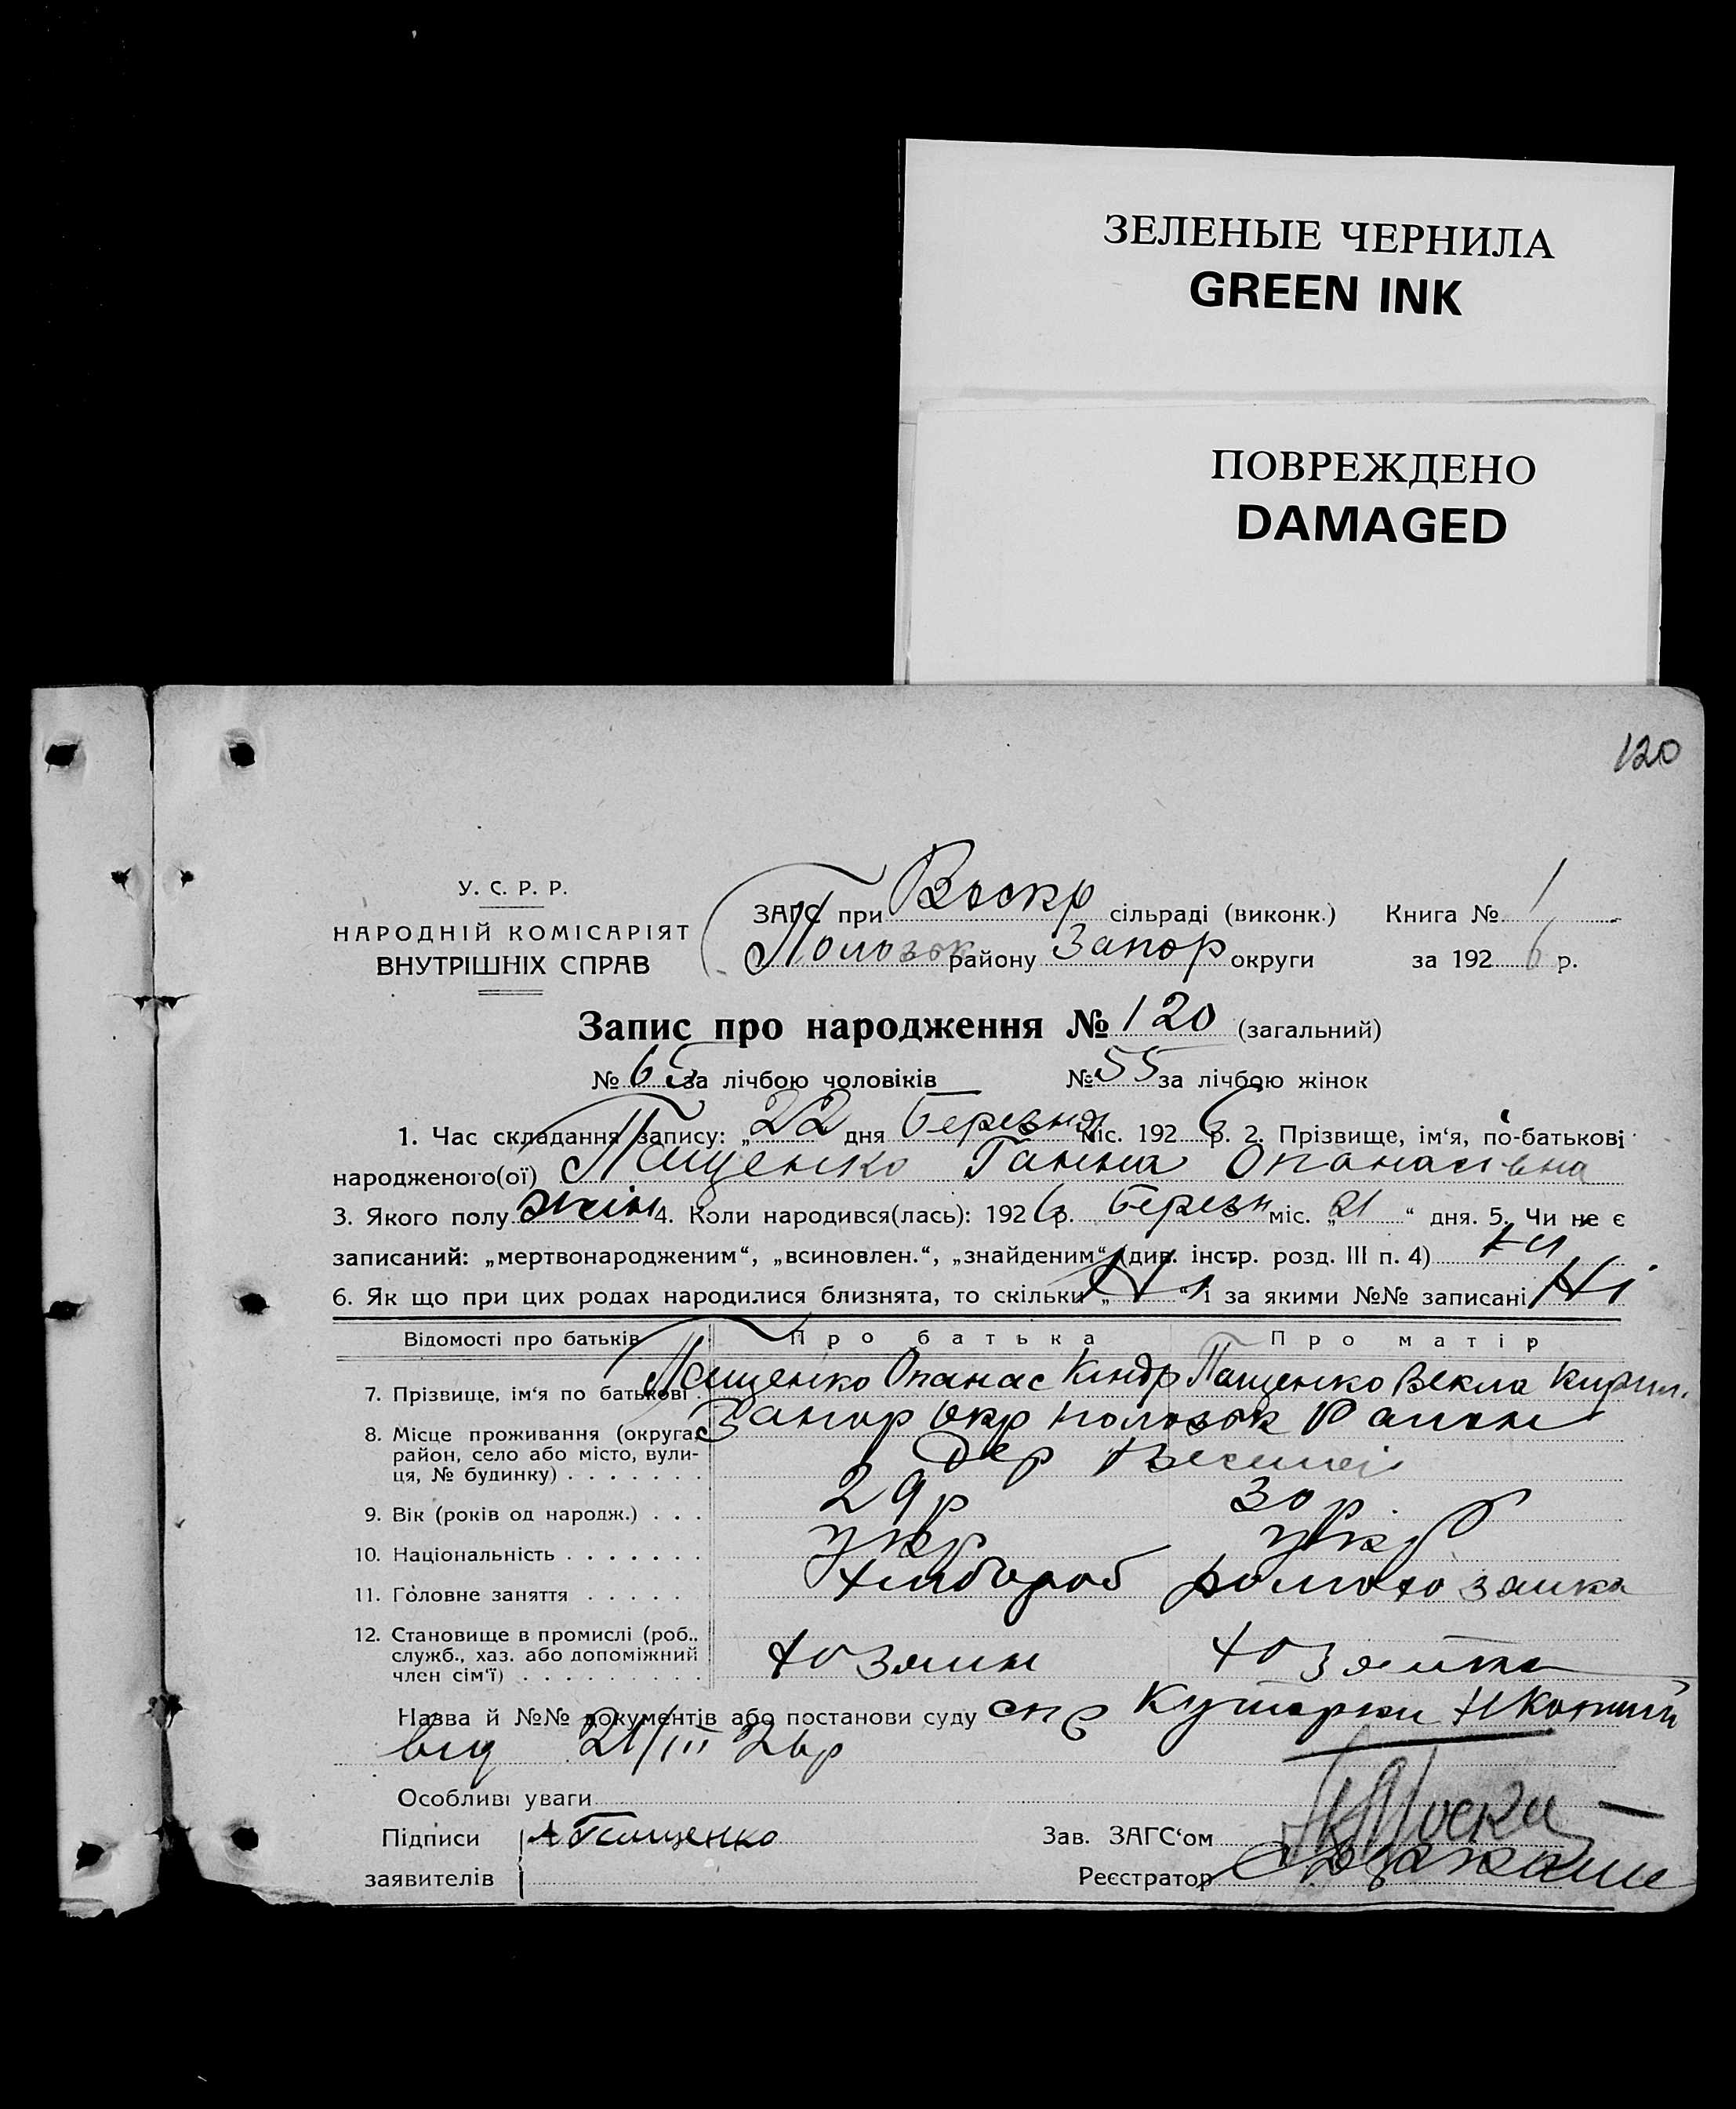 ЗЕЛЕНЫЕ ЧЕРНИЛА
GREEN INK
ПОВРЕЖДЕНО
DAMAGED
120
У. С. Р. Р.
НАРОДНІЙ КОМІСАРІЯТ
ВНУТРІШНІХ СПРАВ
ЗАГС при Воскр сільраді (виконк.) Книга № 1
Пологівськ району Запор округи за 1926 р.
Запис про народження № 120 (загальний)
№ 65 за лічбою чоловіків № 55 за лічбою жінок
1. Час складання запису: „22 дня Березня міс. 1926 р. 2. Прізвище, ім‘я, по-батькові
народженого(ої) Пащенко Ганна Опанасівна
3. Якого полу жін 4. Коли народився(лась): 1926 р. Березн міс. „21“ дня. 5. Чи не є
записаний: „мертвонародженим“, „всиновлен.“, „знайденим“ (див. інстр. розд. III п. 4) Ні
6. Як що при цих родах народилися близнята, то скільки „Ні“ і за якими №№ записані Ні
Відомості про батьків Про батька Про матір
7. Прізвище, ім‘я по батькові . Пащенко Опанас Кіндр Пащенко Векла Кирил.
8. Місце проживання (округа, Запор окр Район
район, село або місто, вули- дер
ця, № будинку) . . . . . . .
9. Вік (років од народж.) . . . 29 р 30 р.
10. Національність . . . . . . . укр укр
11. Головне заняття . . . . . хлібороб домохозяика
12. Становище в промислі (роб.,
служб., хаз. або допоміжний хозяин хозяйка
член сім‘ї) . . . . . . . . .
Назва й №№ документів або постанови суду
від 21/III 26 р
Особливі уваги
Підписи Пащенко Зав. ЗАГС‘ом
заявителів Реєстратор